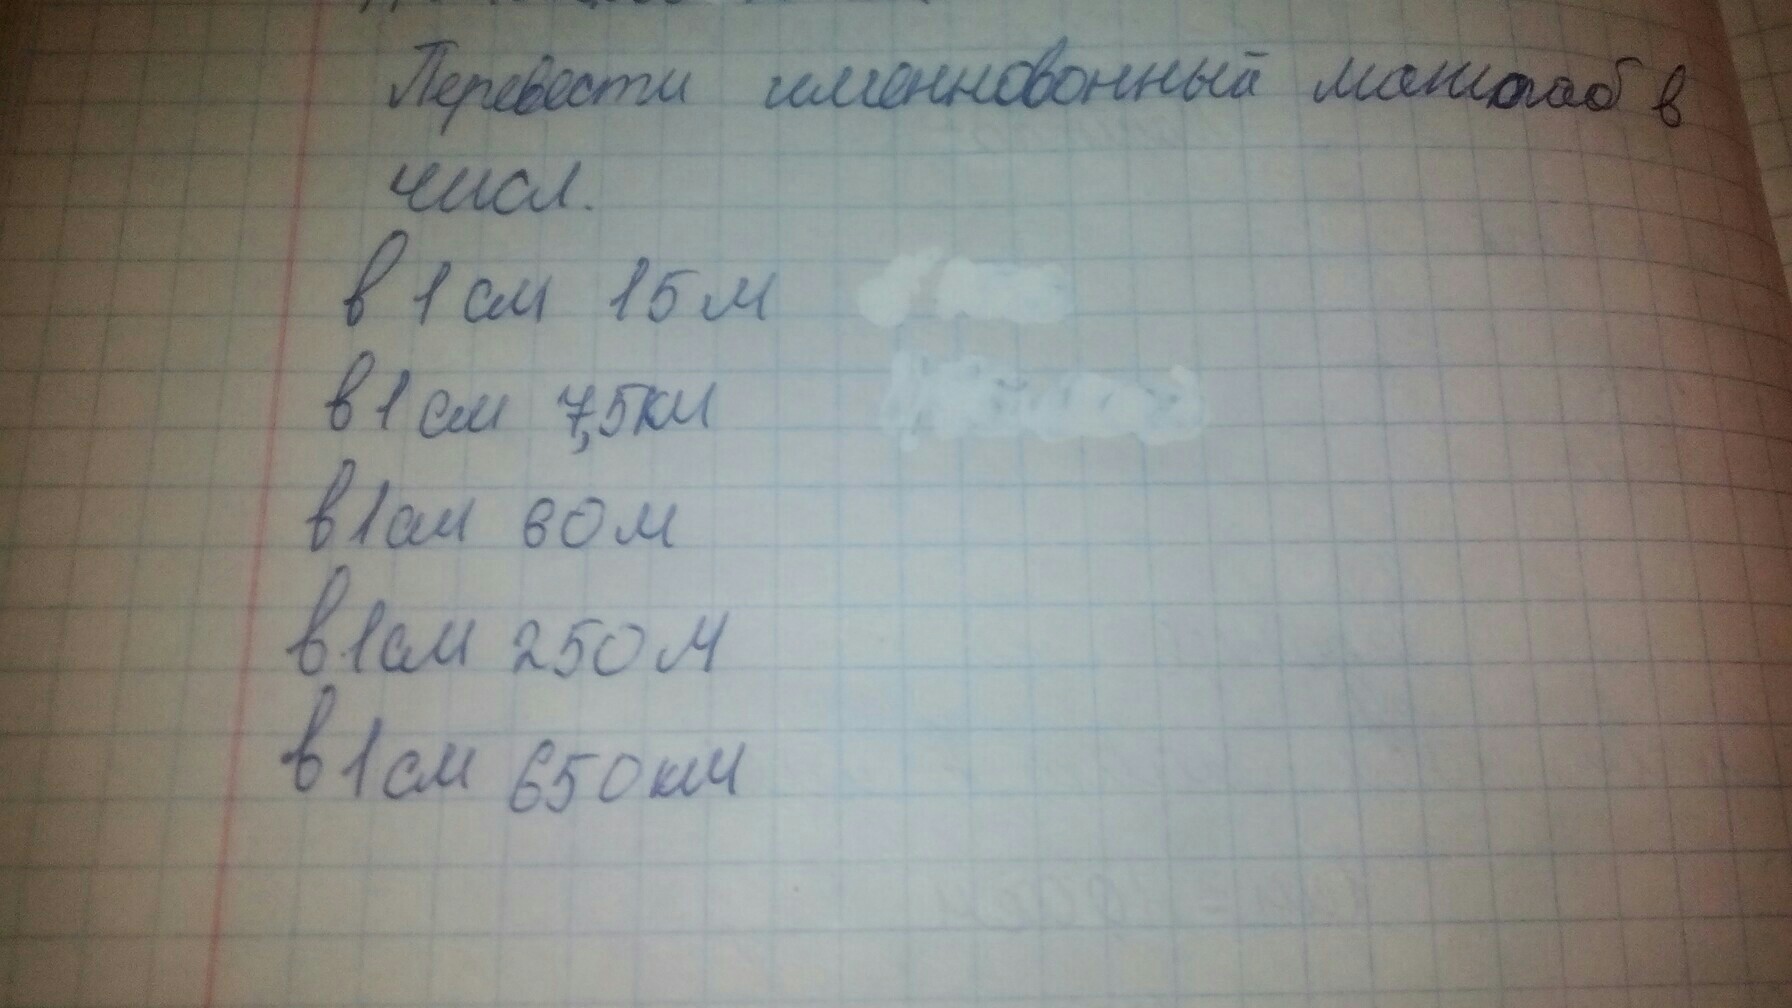 Перевести именновонный масштаб в
числ.
в 1 см 15 м
в 1 см 7,5 км
в 1 см 60 м
в 1 см 250 м
в 1 см 650 км